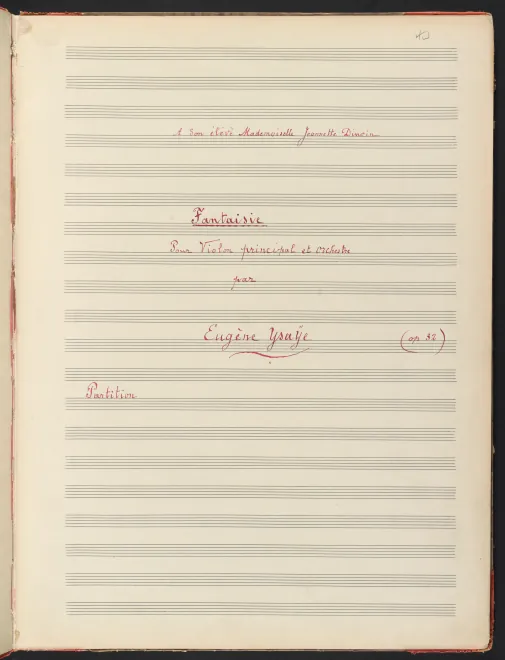 A son élève Mademoiselle Jeannette Dincin
Fantaisie
Pour Violon principal et Orchestre
par
Eugène Ysaÿe
(op 32)
Partition